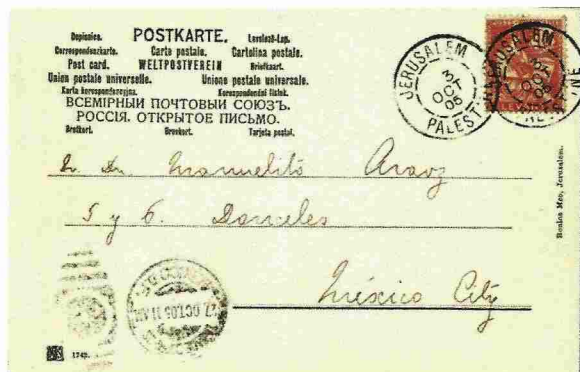 Dopisnice. POSTKARTE. Levelező-Lap.
Correspondenzkarte. Carta postale. Cartolina postale.
Post card. WELTPOSTVEREIN Briefkaart.
Union postale universelle. Unione postale universale.
Karta korespondencyjna. Korespondenční lístek.
ВСЕМІРНЫЙ ПОЧТОВЫЙ СОЮЗЪ.
РОССІЯ. ОТКРЫТОЕ ПИСЬМО.
Brefkort. Brevkort. Tarjeta postal.
JERUSALEM
OCT
05
PALESTINE
JERUSALEM
PALESTINE
LEVANT
Manuelito Araoz
5 y 6. Donceles
México City
27 OCT.05 11 AM
Bonica Meo, Jerusalem.
1742.